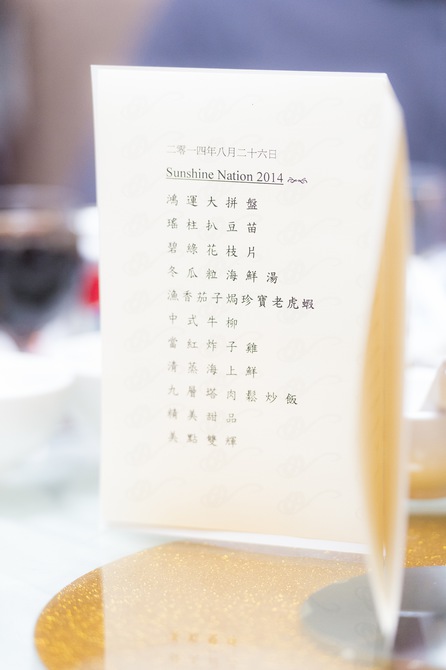 二零一四年八月二十六日
Sunshine Nation 2014
鴻運大拼盤
瑤柱扒豆苗
碧綠花枝片
冬瓜粒海鮮湯
漁香茄子焗珍寶老虎蝦
中式牛柳
當紅炸子雞
清蒸海上鮮
九層塔肉鬆炒飯
精美甜品
美點雙輝